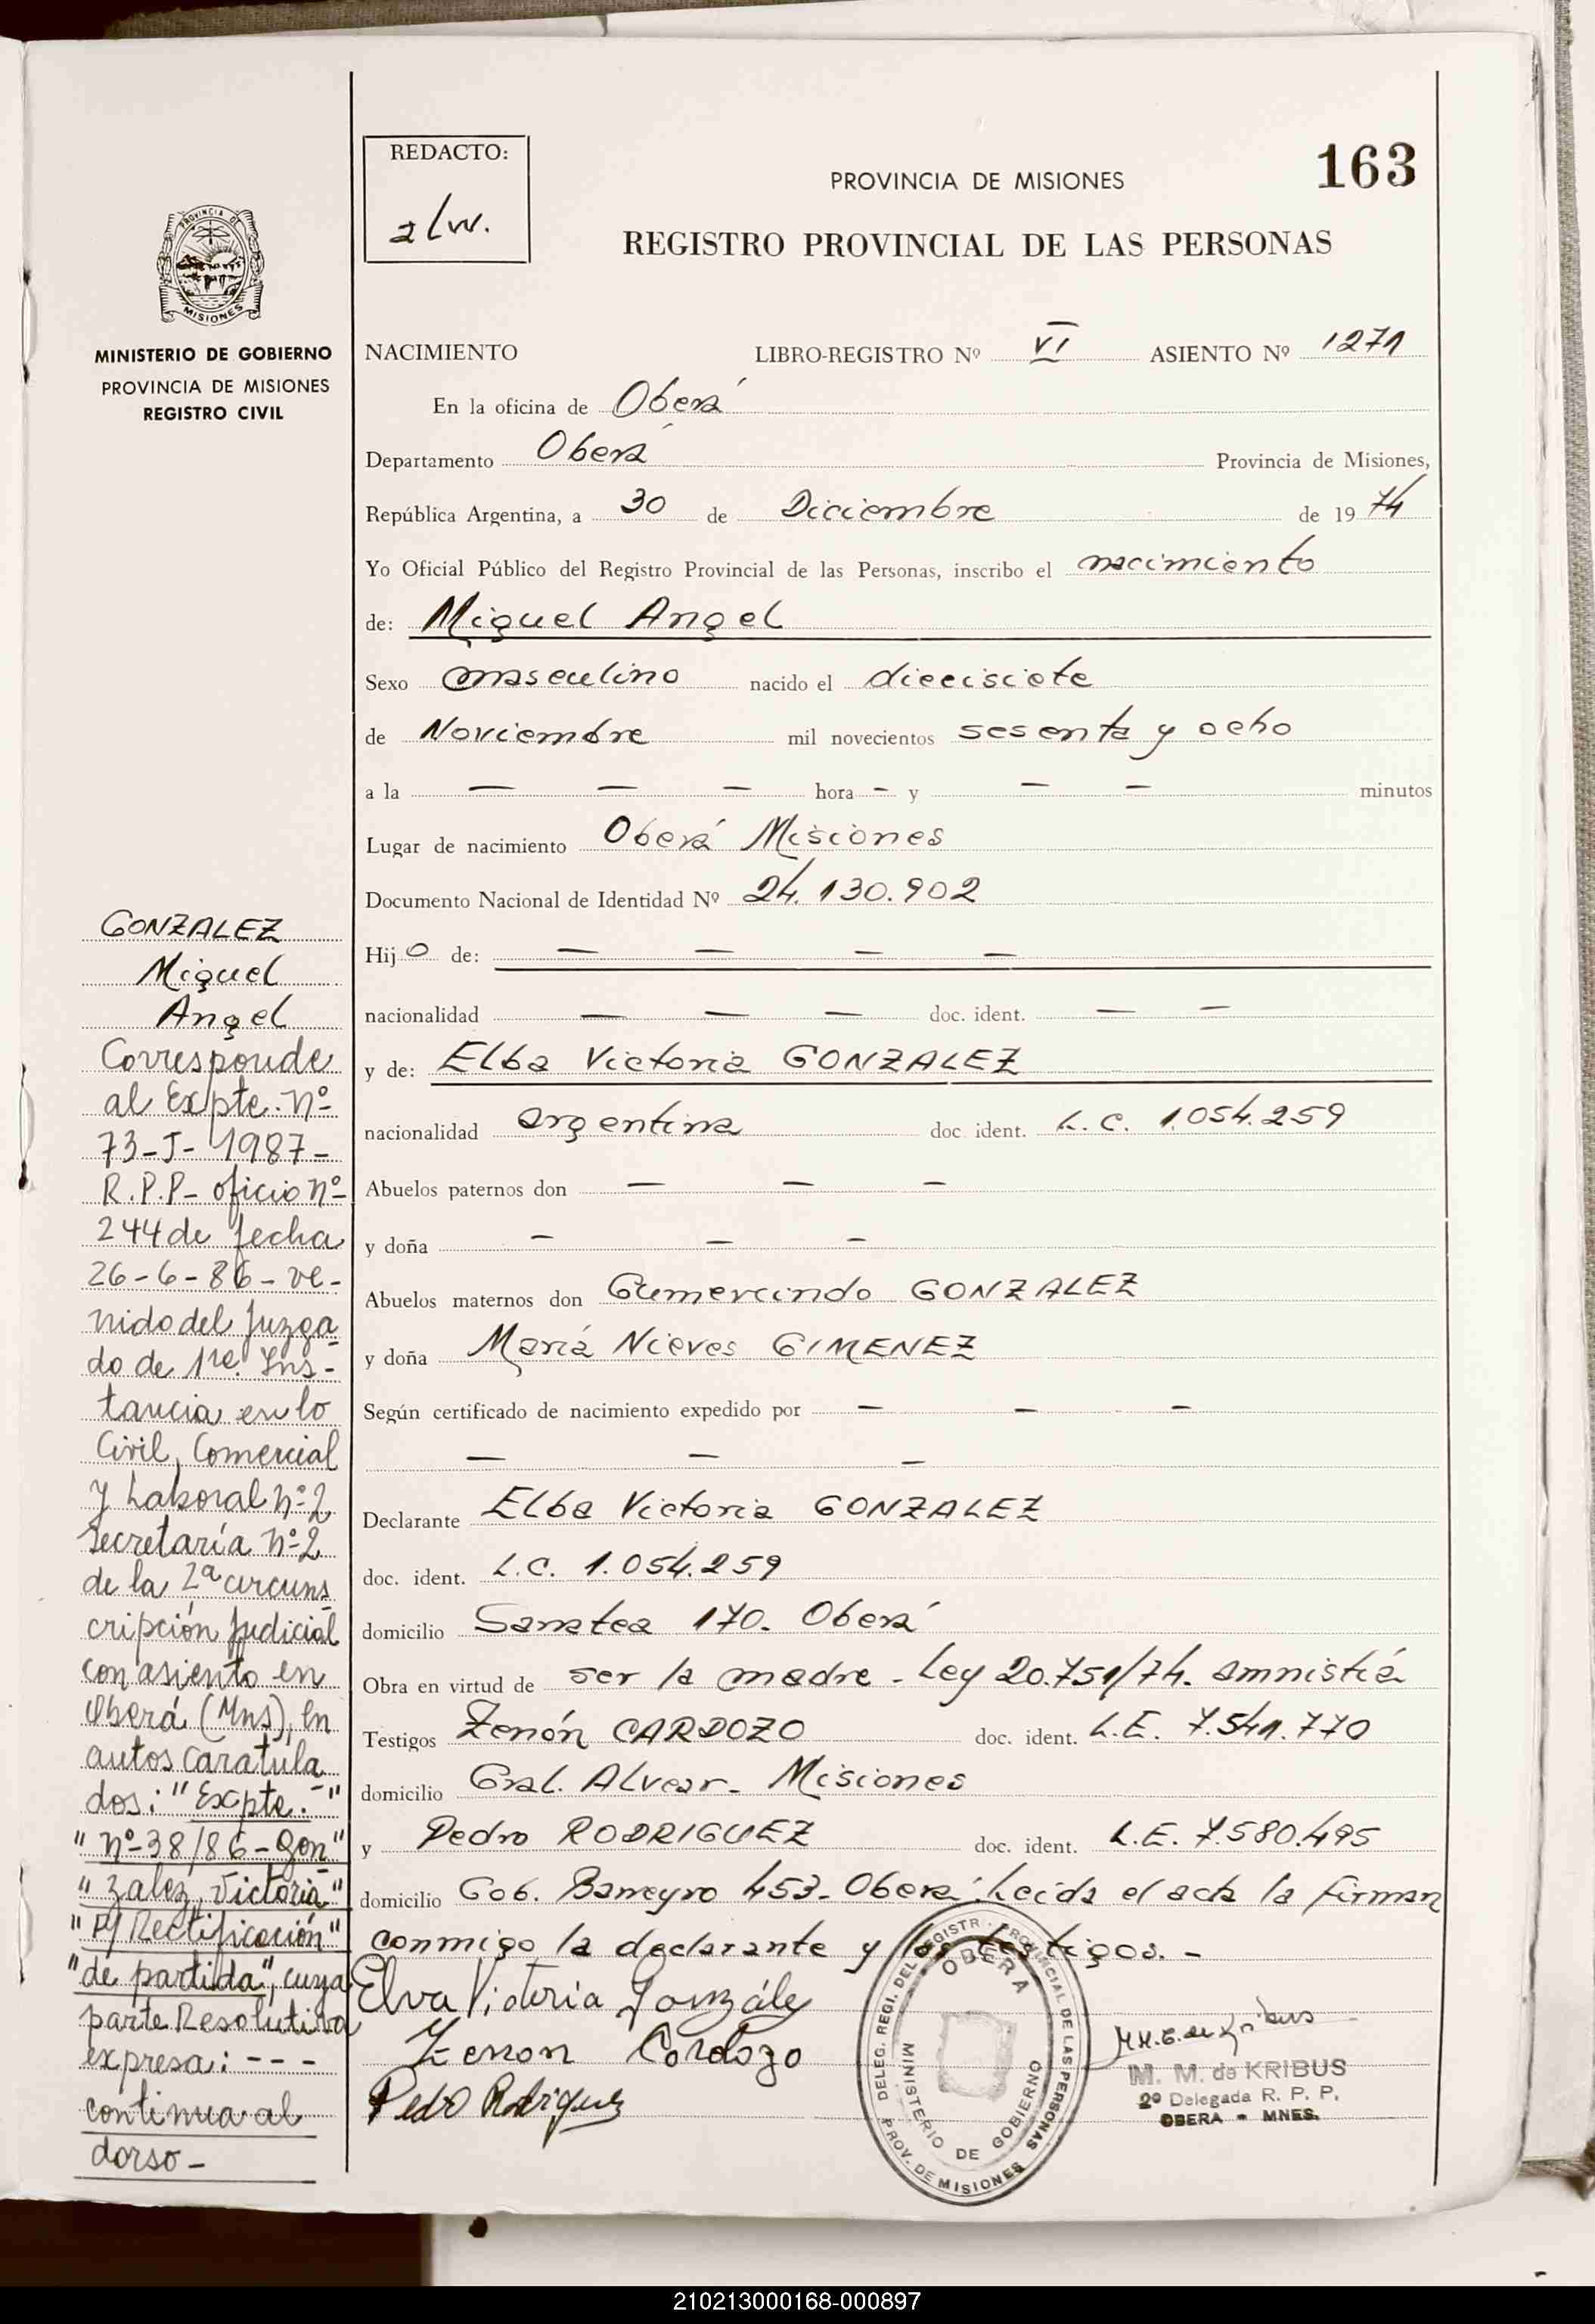 REDACTO:
PROVINCIA DE MISIONES
163
REGISTRO PROVINCIAL DE LAS PERSONAS
PROVINCIA DE
MISIONES
MINISTERIO DE GOBIERNO
PROVINCIA DE MISIONES
REGISTRO CIVIL
NACIMIENTO LIBRO-REGISTRO Nº VI ASIENTO Nº 1271
En la oficina de Oberá
Departamento Oberá Provincia de Misiones,
República Argentina, a 30 de Diciembre de 1974
Yo Oficial Público del Registro Provincial de las Personas, inscribo el nacimiento
de: Miguel Angel
Sexo masculino nacido el diecisiete
de Noviembre mil novecientos sesenta y ocho
a la — — — hora - y — — minutos
Lugar de nacimiento Oberá Misiones
Documento Nacional de Identidad Nº 24.130.902
Hijo de: — — — —
nacionalidad — — — doc. ident. — —
y de: Elba Victoria GONZALEZ
nacionalidad argentina doc. ident. L.C. 1.054.259
Abuelos paternos don — — —
y doña — — —
Abuelos maternos don Gumercindo GONZALEZ
y doña María Nieves GIMENEZ
Según certificado de nacimiento expedido por — — —
— — —
Declarante Elba Victoria GONZALEZ
doc. ident. L.C. 1.054.259
domicilio 170. Oberá
Obra en virtud de ser la madre - Ley 20.751/74. amnistiá
Testigos Zenón CARDOZO doc. ident. L.E. 7.541.770
domicilio Gral. Alvear - Misiones
y Pedro RODRIGUEZ doc. ident. L.E. 7.580.495
domicilio Gob. Barreyro 453- Oberá. Leída el acta la firman
conmigo la declarante y los testigos. -
Elva Victoria González
Zenon Cardozo
Pedro Rodriguez
DELEG. REGI. DEL REGISTR. PROVINCIAL DE LAS PERSONAS
OBERA
MINISTERIO DE GOBIERNO
PROV. DE MISIONES
M. M. de KRIBUS
2º Delegada R. P. P.
OBERA - MNES.
GONZALEZ
Miguel
Angel
Corresponde
al Expte. nº
73-J-1987-
R.P.P- oficio nº
244 de fecha
26-6-86- ve-
nido del Juzga
do de 1ra. Ins-
tancia en lo
Civil, Comercial
y Laboral nº 2
Secretaría nº 2
de la 2ª circuns
cripción Judicial
con asiento en
Oberá (Mns), en
autos caratula
dos: "Expte.-"
"nº 38/86-Gon"
"zalez, Victoria"
"P/ Rectificación"
"de partida", cuya
parte Resolutiva
expresa: ---
continua al
dorso-
210213000168-000897